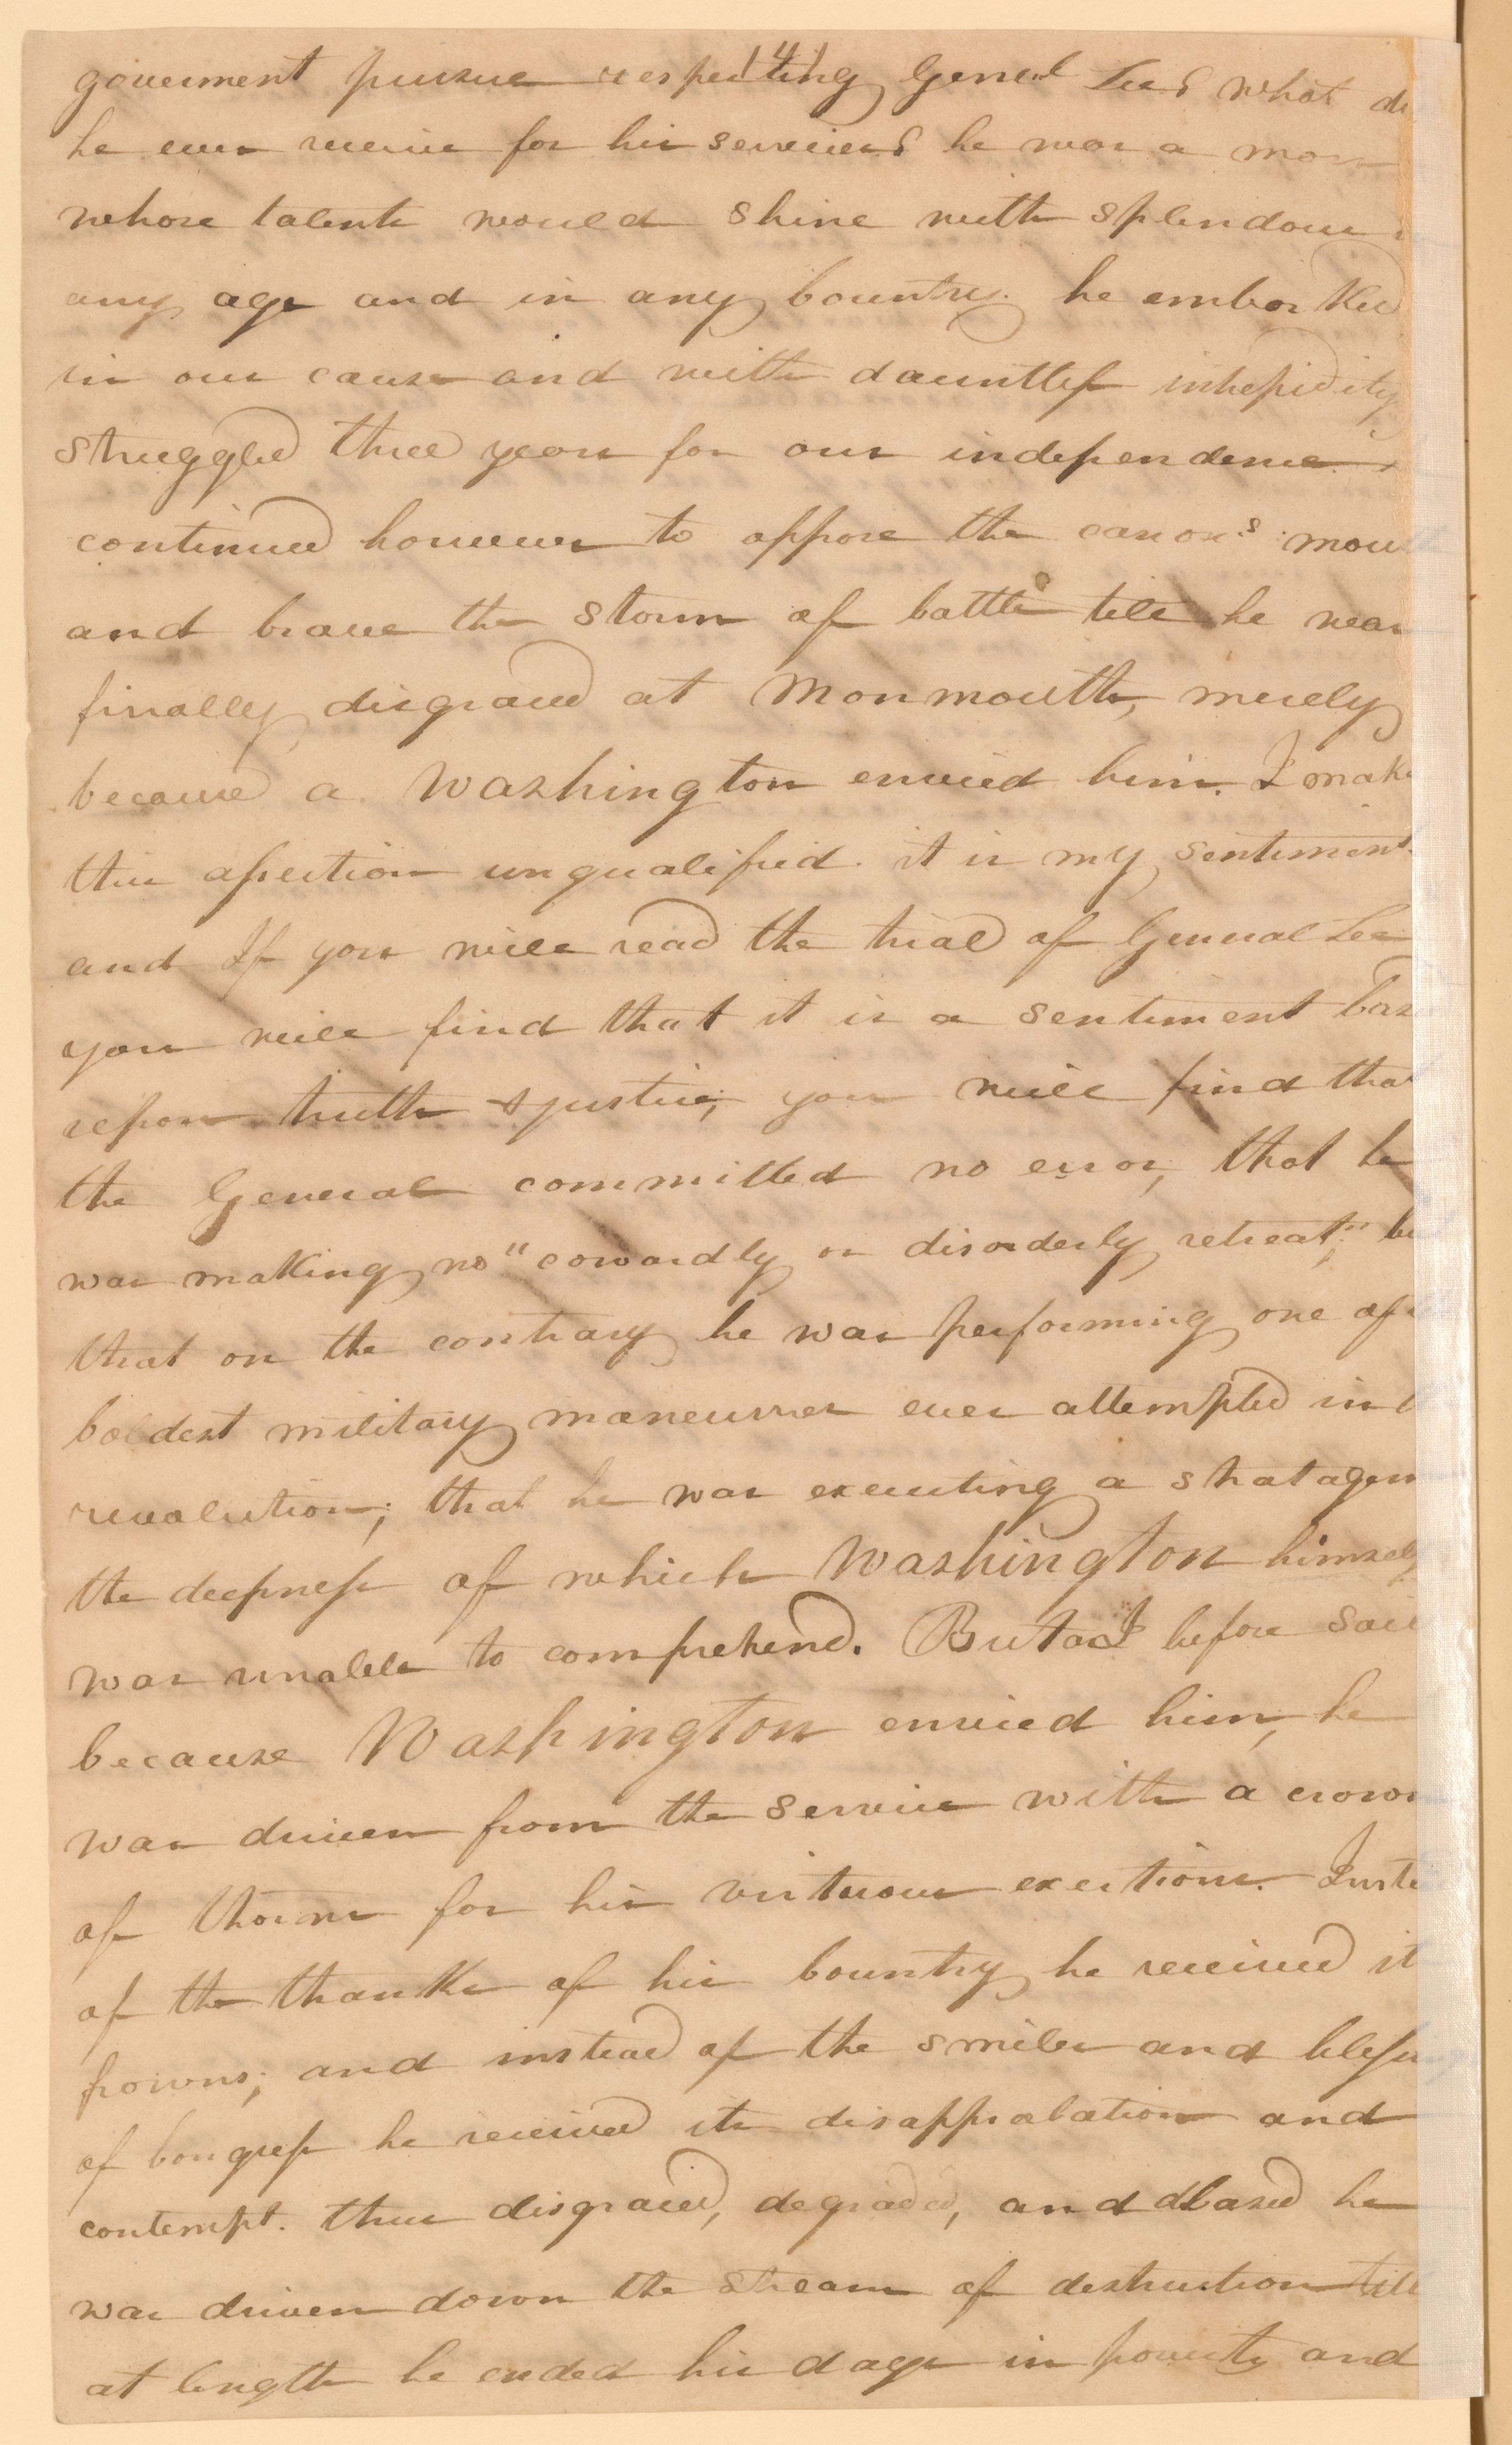 |4|
goverment pursue respecting Genel Lee? what di
he ever receive for his services? he was a man
whose talents would shine with splendour
any age and in any Country. he embarked
in our cause and with dauntless intrepidity
struggled three years for our independence.
continued however to oppose the canon's mou
and brave the storm of battle till he was
finally disgraced at Monmouth, merely
because a Washington envied him. I make
this assertion unqualified. it is my sentiment.
and If you will read the trial of General Lee
you will find that it is a sentiment bas
upon truth & justice; you will find that
the General committed no error, that he
was making no "cowardly or disorderly retreat;" bu
that on the contrary he was performing one of
boldest military maneuvres ever attempted in
revolution; that he was executing a stratagem
the deepness of which Washington himself
was unable to comprehend. But as I before said
because Washington envied him, he
was driven from the service with a crown
of thorns for his virtuous exertions. Inste
of the thanks of his Country he received it
frowns; and instead of the smiles and blessi
of Congress he received its disapprobation and
contempt. thus disgraced, degraded, and abased he
was driven down the stream of destruction till
at length he ended his days in poverty and